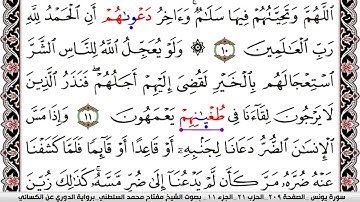 اللَّهُمَّ وَتَحِيَّتُهُمْ فِيهَا سَلَٰمٌ ۚ وَءَاخِرُ دَعْوَىٰهُمْ أَنِ الْحَمْدُ لِلَّهِ
رَبِّ الْعَٰلَمِينَ ١٠ وَلَوْ يُعَجِّلُ اللَّهُ لِلنَّاسِ الشَّرَّ
اسْتِعْجَالَهُم بِالْخَيْرِ لَقُضِيَ إِلَيْهِمْ أَجَلُهُمْ ۖ فَنَذَرُ الَّذِينَ
لَا يَرْجُونَ لِقَآءَنَا فِي طُغْيَٰنِهِمْ يَعْمَهُونَ ١١ وَإِذَا مَسَّ
الْإِنسَٰنَ الضُّرُّ دَعَانَا لِجَنۢبِهِ أَوْ قَاعِدًا أَوْ قَآئِمًا فَلَمَّا كَشَفْنَا
عَنْهُ ضُرَّهُ مَرَّ كَأَن لَّمْ يَدْعُنَآ إِلَىٰ ضُرٍّ مَّسَّهُ ۚ كَذَٰلِكَ زُيِّنَ
سورة يونس الصفحة ٢٠٩ الحزب ٢١ الجزء ١١ بصوت الشيخ مفتاح محمد السلطني برواية الدوري عن الكسائي